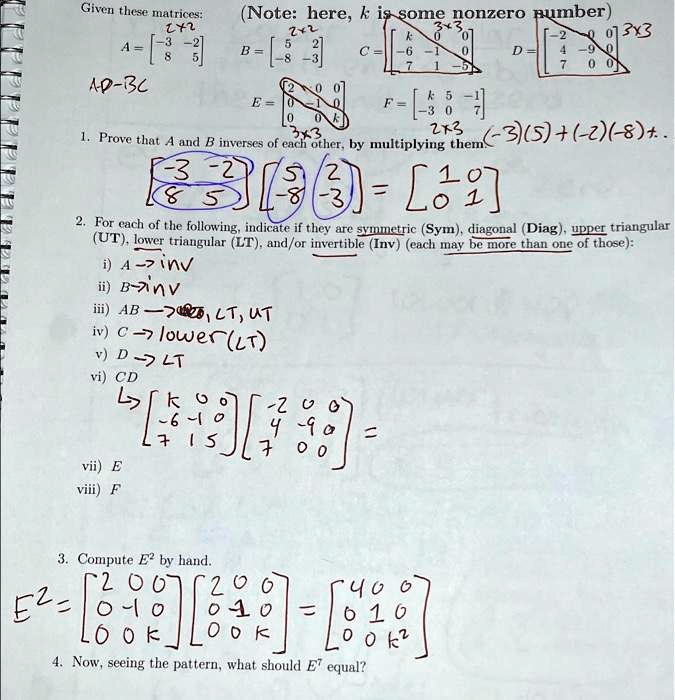 Given these matrices: (Note: here, k is some nonzero number)
2×2 2×2 3×3 3×3
A = [-3 -2] B = [5 2] C = [k 0 0] D = [-2 0 0]
[8 5] [-8 -3] [-6 -1 0] [4 -9 0]
[7 1 -5] [7 0 0]
AD-BC
E = [2 0 0] F = [k 5 -1]
[0 -1 0] [-3 0 7]
[0 0 k]
3×3 2×3 (-3)(5)+(-2)(-8)+..
1. Prove that A and B inverses of each other, by multiplying them.
[-3 -2] [5 2] = [1 0]
[8 5] [-8 -3] [0 1]
2. For each of the following, indicate if they are symmetric (Sym), diagonal (Diag), upper triangular
(UT), lower triangular (LT), and/or invertible (Inv) (each may be more than one of those):
i) A → inv
ii) B → inv
iii) AB → , LT, UT
iv) C → lower (LT)
v) D → LT
vi) CD
↳ [k 0 0] [-2 0 0]
[-6 -1 0] [4 -9 0] =
[7 1 5] [7 0 0]
vii) E
viii) F
3. Compute E² by hand.
E² = [2 0 0] [2 0 0] = [4 0 0]
[0 -1 0] [0 -1 0] [0 1 0]
[0 0 k] [0 0 k] [0 0 k²]
4. Now, seeing the pattern, what should E⁷ equal?